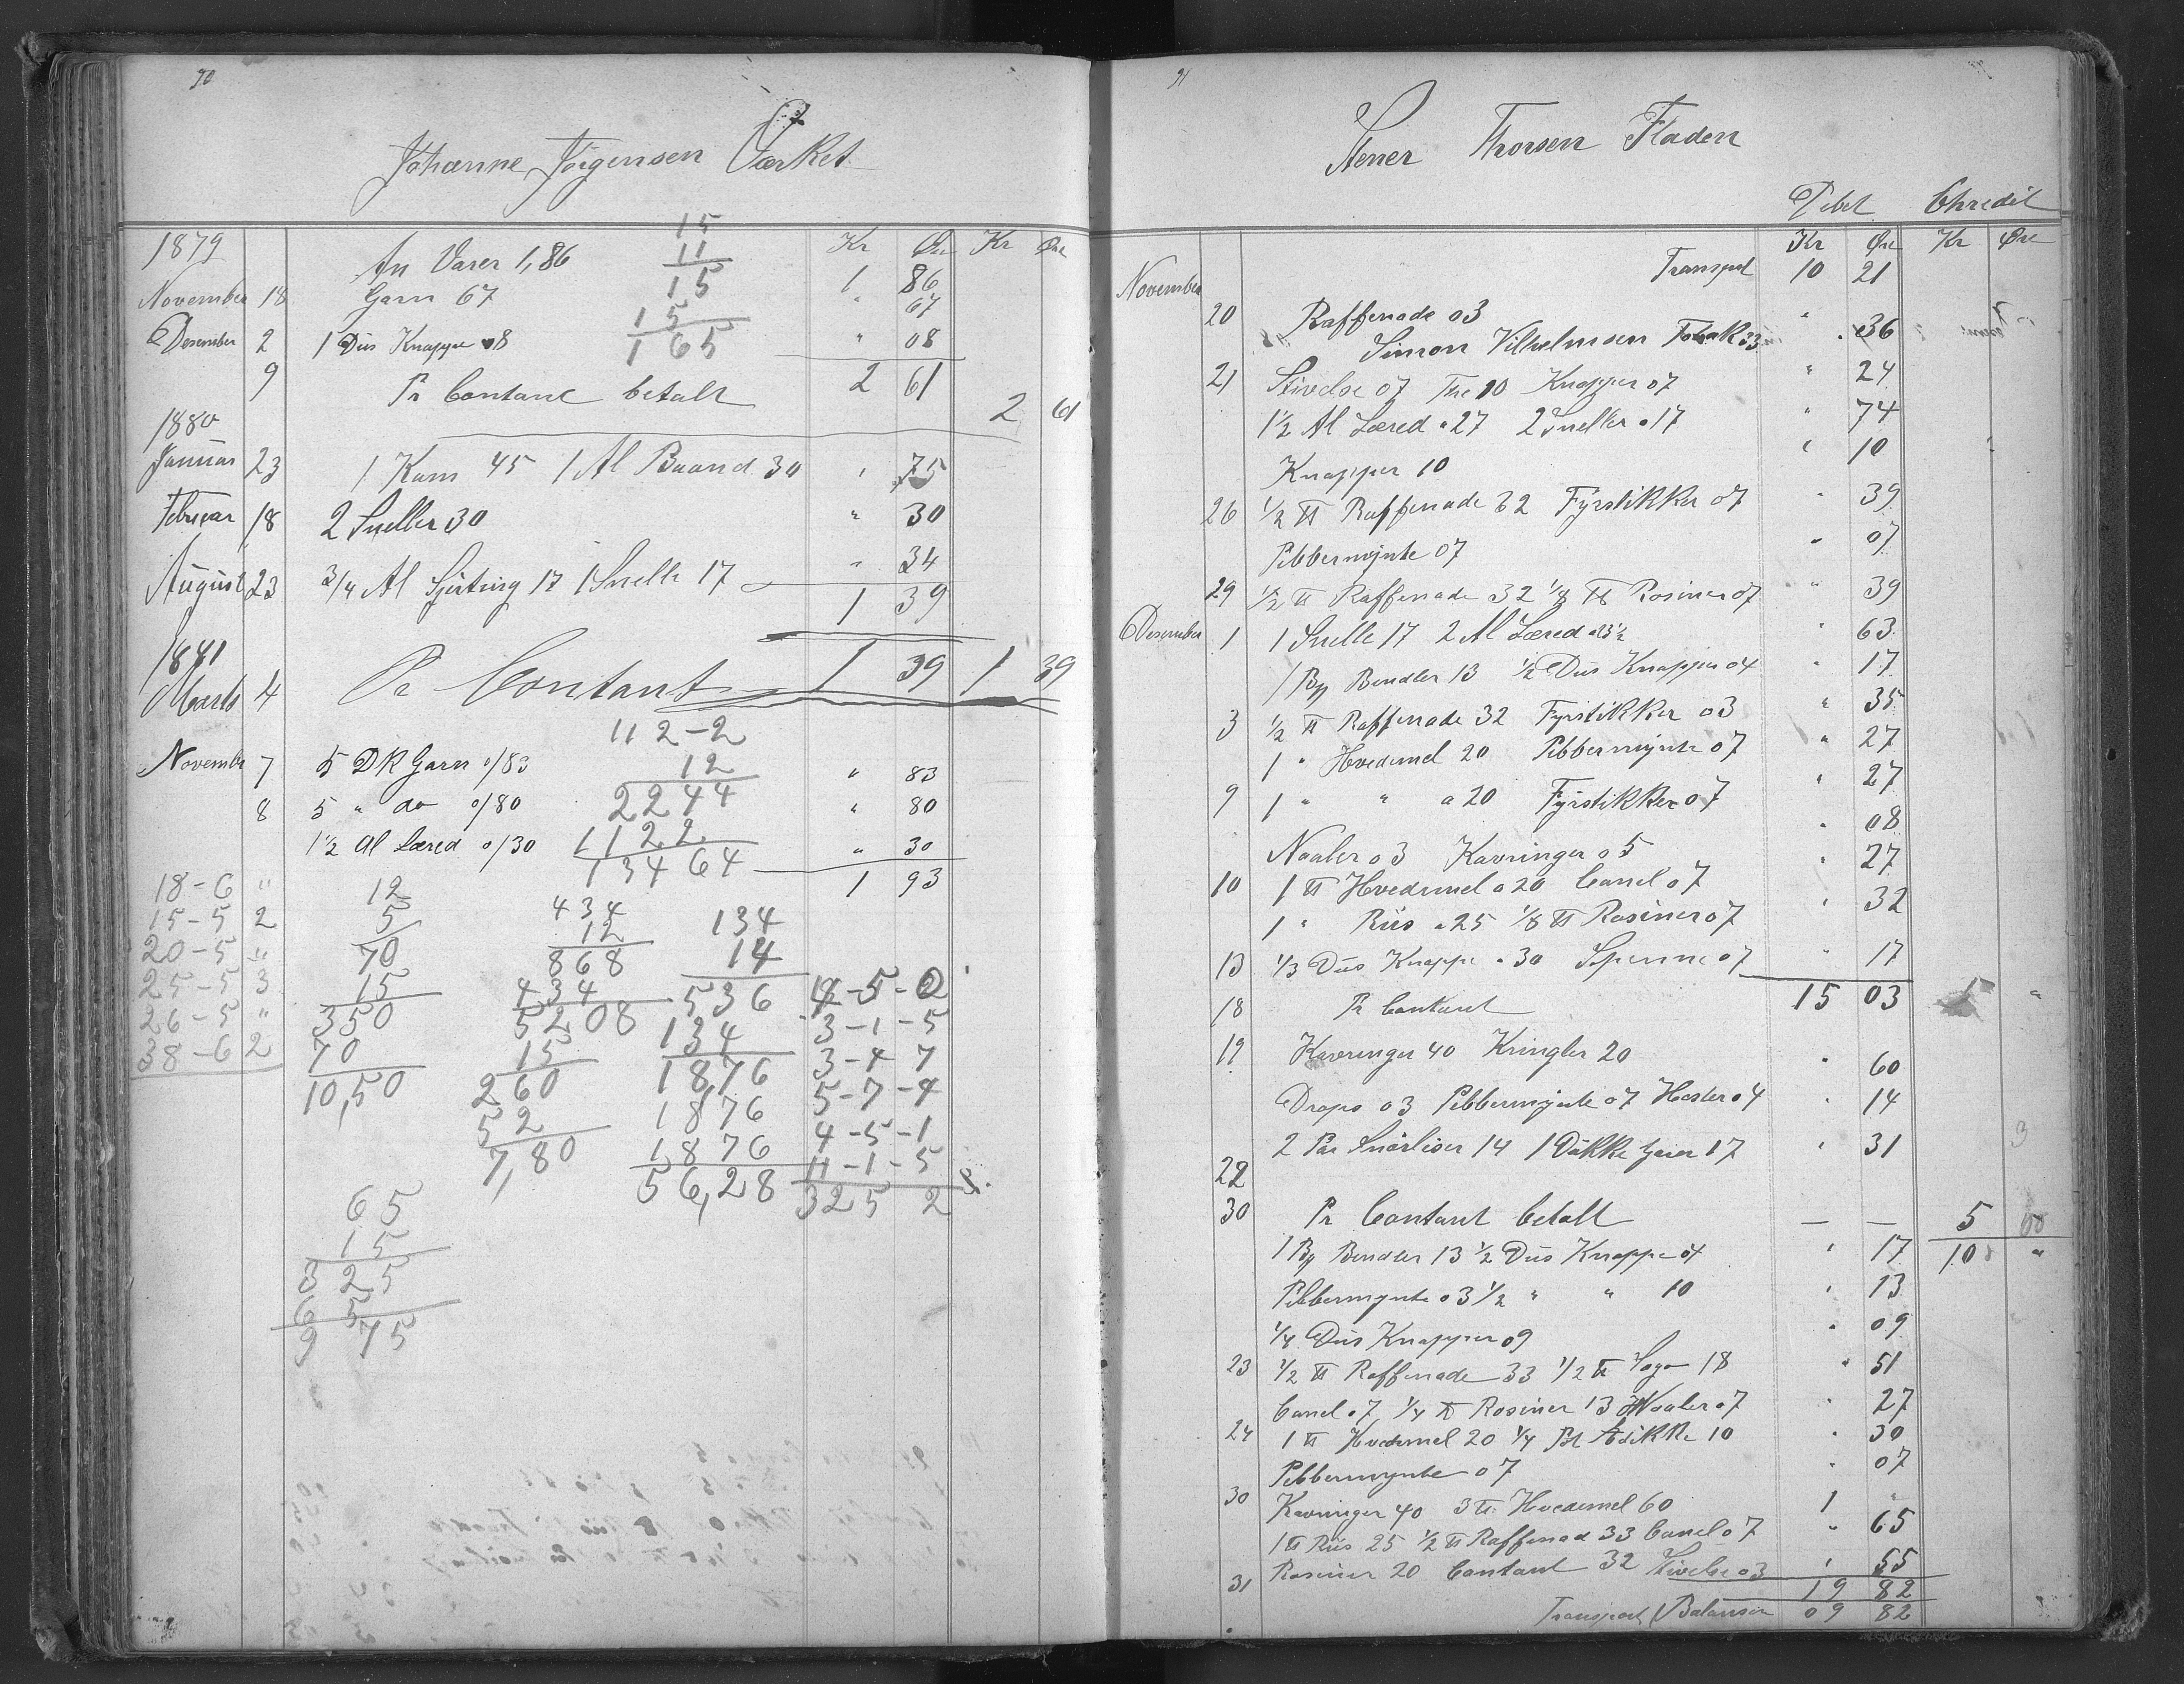 90
Johanne Jörgensen Værket
15
1879 An Varer 1,86 11 Kr Øre Kr Øre
15 1 86
November 18 Garn 67 " 67
15
Desember 2 1 Dus Knapper 08 165 " 08
9 Pr Contant betalt 2 61
2 61
1880
Januar 23 1 Kam 45 1 Al Baand 30 " 75
Februar 18 2 Sneller 30 " 30
August 23 3/4 Al Sjirting 17 1 Snelle 17 " 34
1 39
1881
Marts 4 Pr Contant 1 39 1 39
112-2
November 7 5 DK Garn o/83 12 " 83
8 5 " do o/80 2244 " 80
1½ Al Læred o/30 1122 " 30
13464 1 93
18-6 " 12
15-5 2 5 434 134
20-5 " 70 12 14
25-5 3 15 868 536 12-5-2
26-5 " 350 434 134 3-1-5
38-6 2 70 5208 1876 3-4 7
10,50 15 1876 5-7-4
260 1876 4-5-1
52 56,28 11-1-5
7,80 325 2
65
15
325
65
9 75
91
Stener Thorsen Fladen
Debet Chredit
Kr Øre Kr Øre
Transport 10 21
November
20 Raffenade 03
Simon Vilhelmsen Tobak 33 " 36
21 Stivelse 07 The 10 Knapper 07 " 24
1½ Al Læred a 27 2 Sneller a 17 " 74
Knapper 10 " 10
26 ½ ℔ Raffenade 32 Fyrstikker 07 " 39
Pibbermynte 07 " 07
29 ½ ℔ Raffenade 32 ⅛ ℔ Rosiner 07 " 39
Desember 1 1 Snelle 17 2 Al Læred a 23½ " 63
1 By Bendler 13 ½ Dus Knapper 04 " 17
3 ½ ℔ Raffenade 32 Fyrstikker 03 " 35
1 " Hvedemel 20 Pibbermynte 07 " 27
9 1 " " a 20 Fyrstikker 07 " 27
Naaler 03 Kavringer 05 " 08
10 1 ℔ Hvedemel a 20 Canel 07 " 27
1 " Riis a 25 ⅛ ℔ Rosiner 07 " 32
13 ⅓ Dus Knappe a 30 Spenne 07 " 17
18 Pr Contant 15 03
19 Kavringer 40 Kringler 20 " 60
Drops 03 Pibbermynte 07 Hester 04 " 14
2 Par Snörliser 14 1 Dukke Garn 17 " 31
22
30 Pr Contant betalt — — 5 00
1 By Bendler 13 ½ Dus Knappe 04 " 17 10 "
Pibbermynte 03 ½ " " 10 " 13
¼ Dus Knapper 09 " 09
23 ½ ℔ Raffenade 33 ½ ℔ Sago 18 " 51
Canel 07 ¼ ℔ Rosiner 13 Naaler 07 " 27
24 1 ℔ Hvedemel 20 ¼ Pot Edikke 10 " 30
Pibbermynte 07 " 07
30 Kavringer 40 3 ℔ Hvedemel 60 1 "
1 ℔ Riis 25 ½ ℔ Raffenad 33 Canel 07 " 65
31 Rosiner 20 Contant 32 Stivelse 03 " 55
19 82
Transport Balansen 09 82